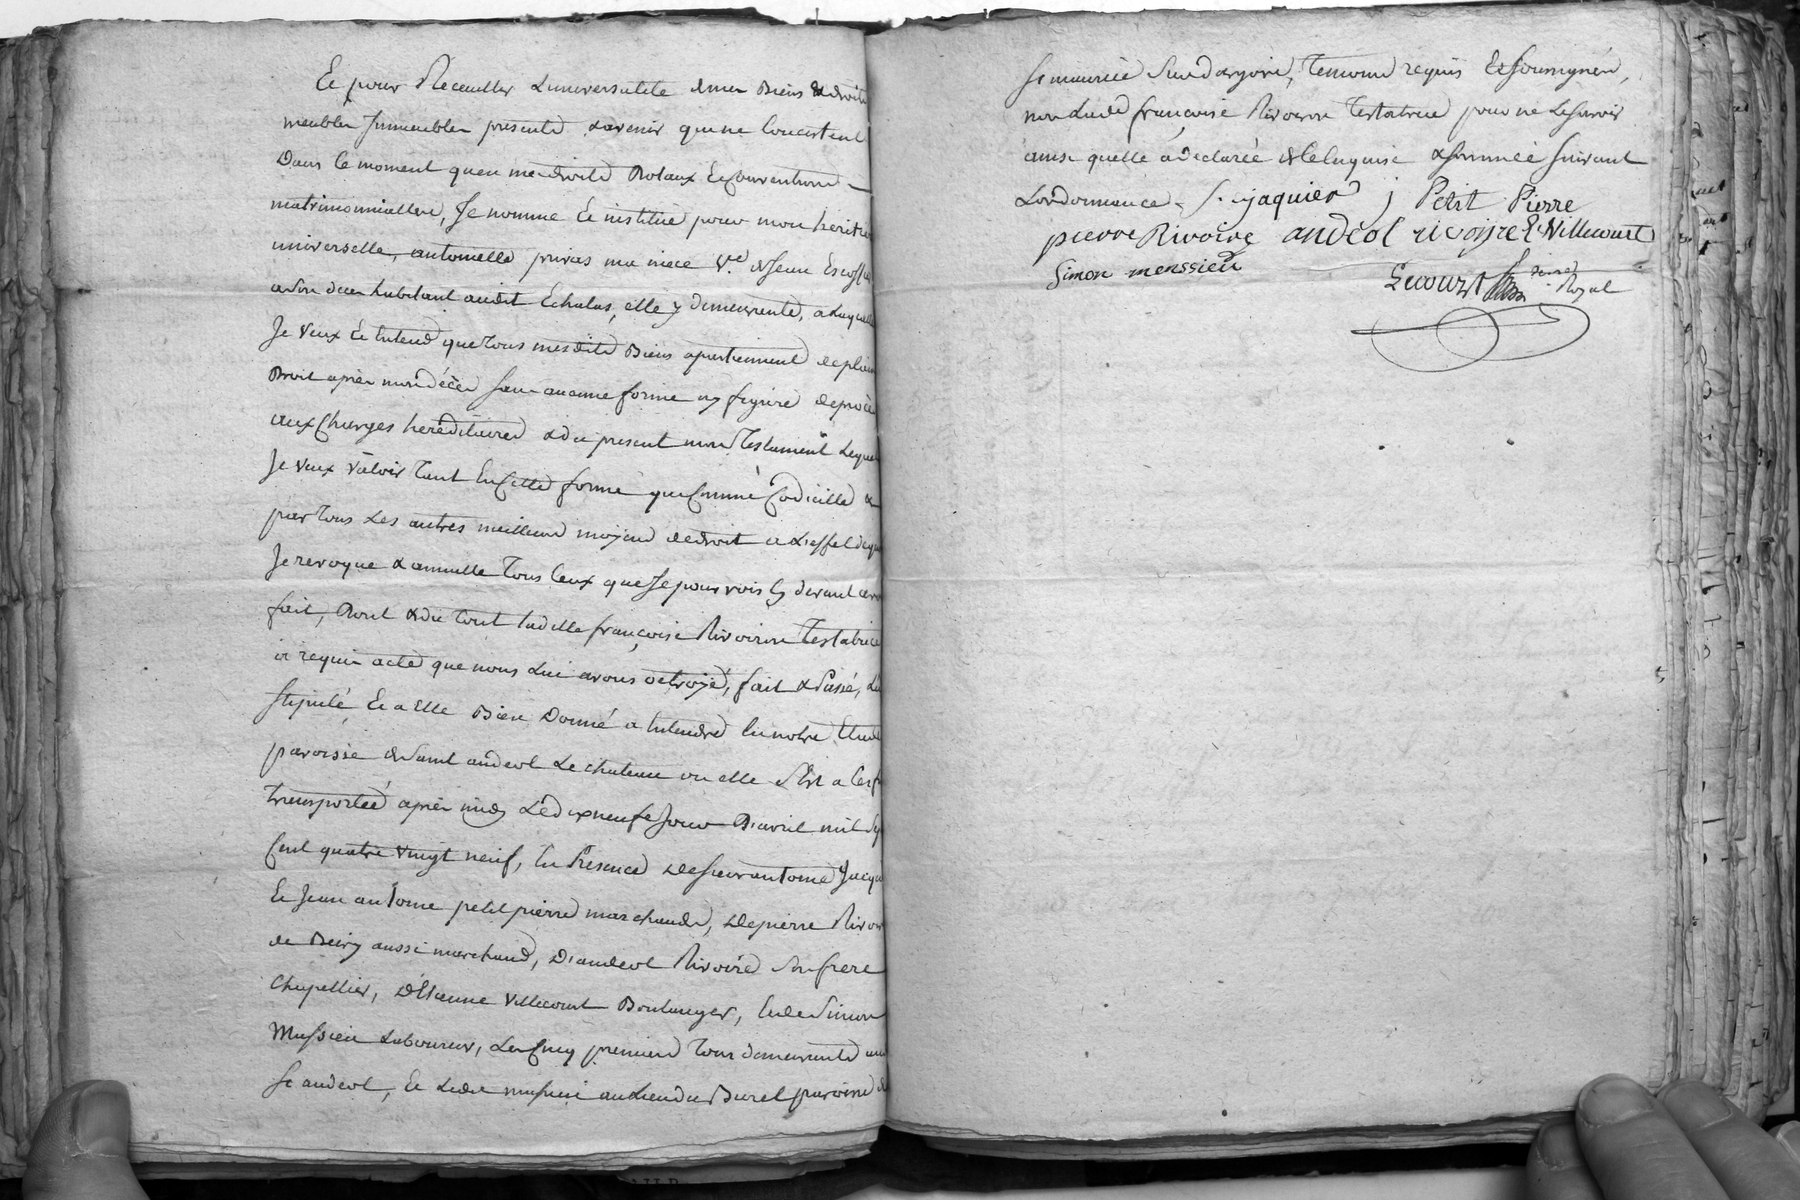 Et pour Receuillir Luniversalité de mes Biens & droits
meubles Immeubles presents & avenir qui ne Concistent
Dans le moment qu'en mes droits Dotaux Et Conventions
matrimonialles, Je nomme Et institue pour mon heritiere
universelle, antoinette privas ma niece Ve. de Jean Escoffier
a son deces habitant audit Echalas, elle y demeurante, a Laquelle
Je veux Et Entend que tous mesdits Biens apartiennent de plein
Droit après mon décès sans aucune forme ny figure de procès
aux Charges hereditaires & du present mon Testament Lequel
Je veux valoir tant En Cette forme que Comme Codicille &
par tous Les autres meilleurs moyens de droit a L'effet de quoi
Je revoque & annulle tous Ceux que Je pourrois Cy devant avoir
fait, Dont & du tout ladite françoise Rivoiron Testatrice
a requis acte que nous Lui avons octroyé, fait & Passé, Lu
stipulé Et a Elle Bien Donné a Entendre En notre Etude
paroisse de Saint andeol Le chateau ou elle s'est a Cet fin
transportée après midy Le dixneufe Jour D'avril mil sept
Cent quatre vingt neuf, En Presence de sieurs antoine Jacquier
Et Jean antoine petit pierre marchands, de pierre Rivoire
de Bury aussi marchand, D'andeol Rivoire son frere
Chapellier, d'Etienne Villecourt Boulanger, Et de Simon
Messieu Laboureur, Les Cinq premiers tous demeurants audit
St andeol, Et Ledit messieu au Lieu du Burel paroisse de
St maurice Sur dargoire, temoins requis & soussignés,
non Ladite françoise Rivoiron Testatrice pour ne Le savoir
ainsi qu'elle a declarée de Ce Enquise & sommée suivant
Lordonnance. jaquier j Petit Pierre
pierre Rivoire andéol rivoire E Villecourt
Simon menssieu
Lecourt
Royal